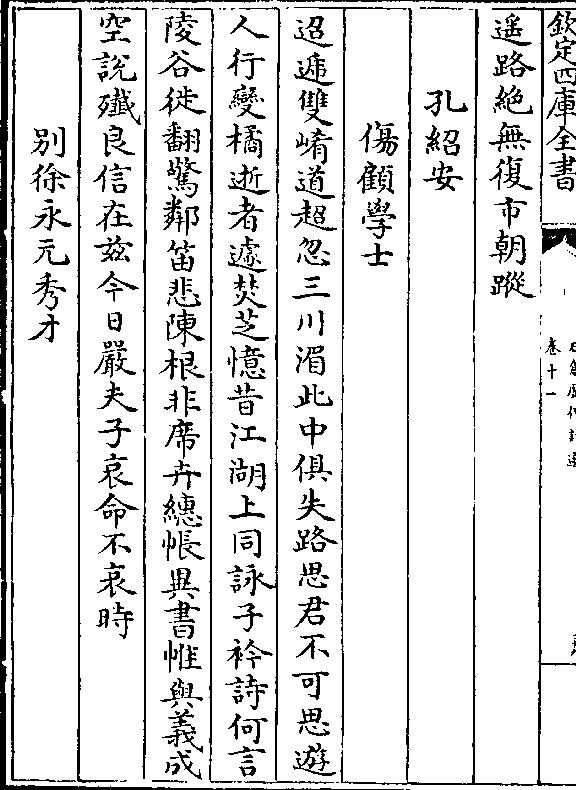 欽定四庫全書
卷十一
遥路絶無復市朝蹤
孔紹安
傷顧學士
迢遞雙崤道超忽三川湄此中俱失路思君不可思遊
人行變橘逝者遽焚芝憶昔江湖上同詠子衿詩何言
陵谷徙翻驚鄰笛悲陳根非席卉繐帳異書帷與義成
空說殲良信在兹今日嚴夫子哀命不哀時
别徐永元秀才